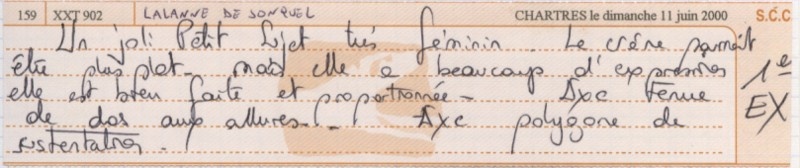 159 XXT 902 LALANNE DE JONQUEL CHARTRES le dimanche 11 juin 2000 S.C.C
Un joli Petit Sujet très féminin. Le crâne pourrait
être plus plat - mais elle a beaucoup d'expressions 1e
elle est bien faite et proportionnée - Axe Ferme EX
de dos aux allures - - Axe polygone de
sustentation -